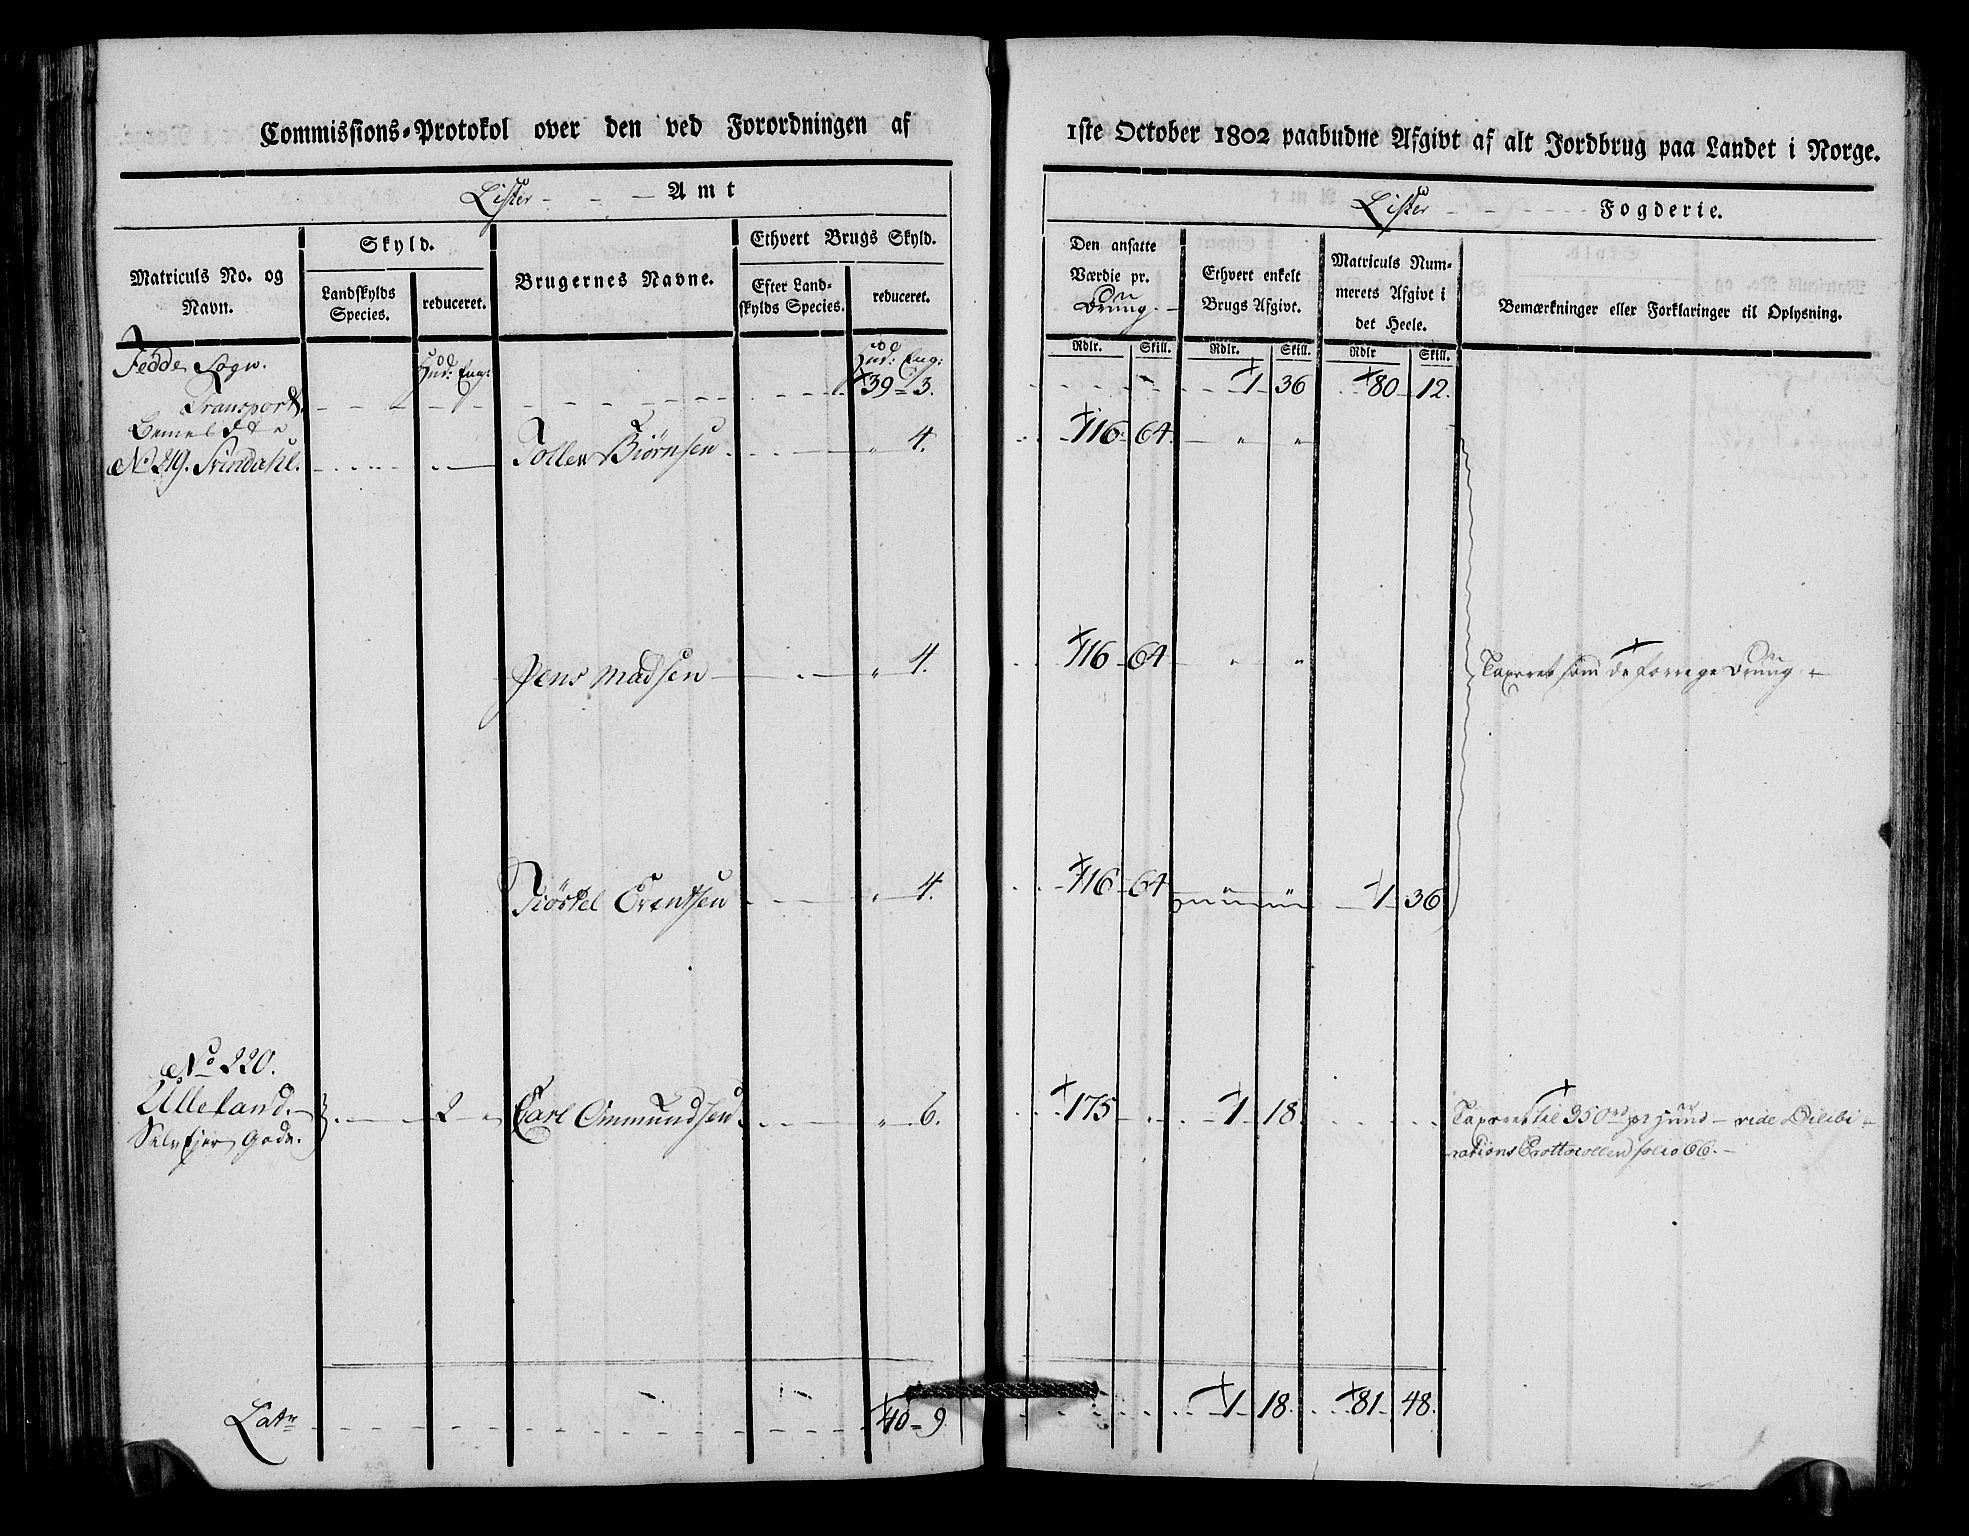 Commissions-Protokol over den ved Forordningen af
1ste October 1802 paabudne Afgivt af alt Jordbrug paa Landet i Norge.
Lister - - - Amt
Lister - - - Fogderie.
Matriculs No. og Navn.
Skyld.
Landskylds Species.
reduceret.
Brugernes Navne.
Ethvert Brugs Skyld.
Efter Landskylds Species.
reduceret.
Den ansatte Værdie pr. Brug.
Ethvert enkelt Brugs Afgivt.
Matriculs Nummerets Afgivt i det Heele.
Bemærkninger eller Forklaringer til Oplysning.
Rdlr. Skill. Rdlr. Skill. Rdlr Skill.
Fedde Sogn. Hud: Eng: Hud: Eng:
Transport 39 - 3. 1 36 80 12.
No 219. Tollen Biørnsen " 4. 116. 64. " "
Jens Madsen " 4. 116 64 " " Taxeret som de forrige Brüg
Tiöstel " 4. 116 64 " " 1 36
No 220.
Ulleland. 2 " Carl Ommundsen. " 6. 175 1 18. Taxeret til 350 rd pr hund - vide Dilibi-
Selvejer Gods. rations Prottocollen folio 66. -
Latr 40 - 9 1 18. 81 48.